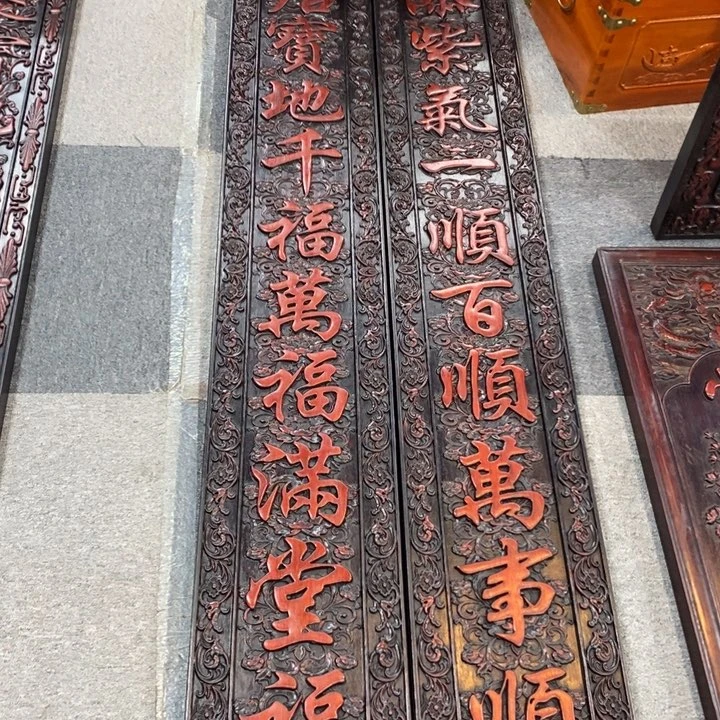 紫氣一順百順萬事順
寶地千福萬福滿堂福